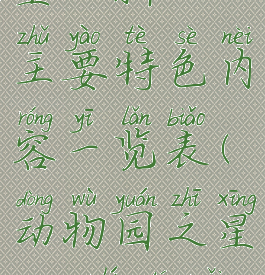 zhǔ yào tè sè nèi
主要特色内
róng yī lǎn biǎo
容一览表(
dòng wù yuán zhī xīng
动物园之星